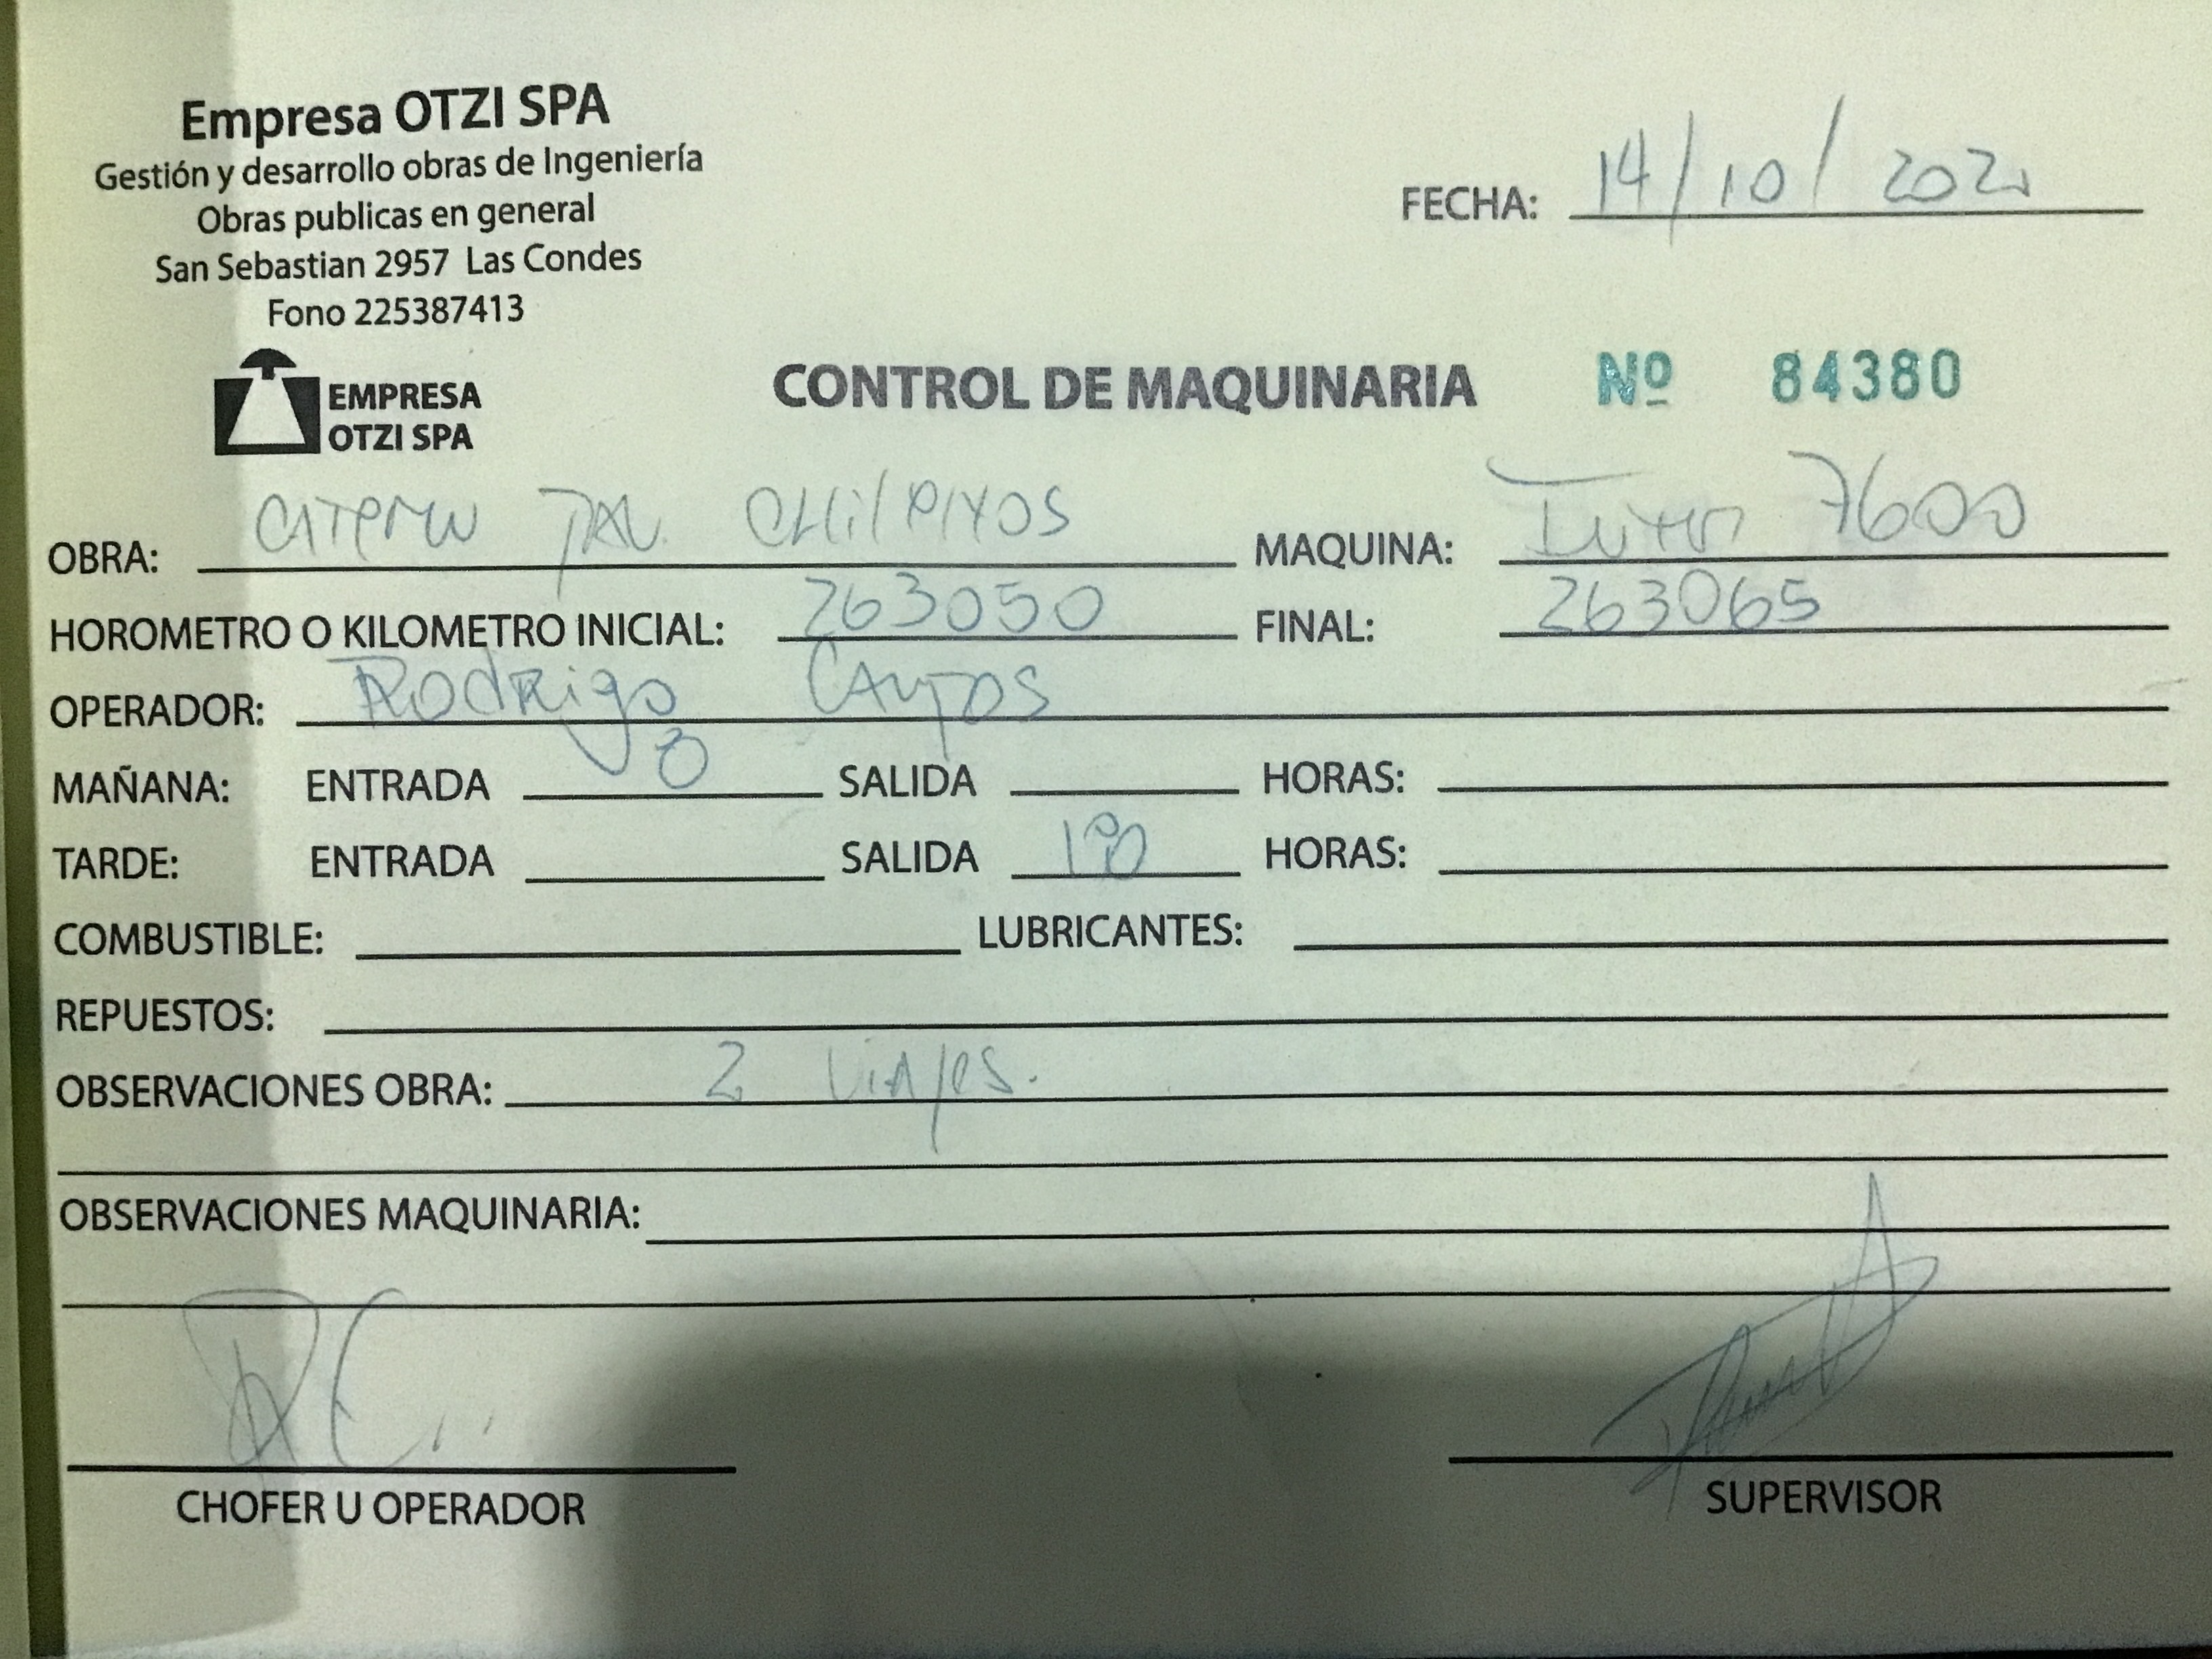 Empresa OTZI SPA
Gestión y desarrollo obras de Ingeniería
Obras publicas en general
San Sebastian 2957 Las Condes
Fono 225387413
FECHA: 14/10/202
EMPRESA
OTZI SPA
CONTROL DE MAQUINARIA Nº 84380
OBRA: MAQUINA: 7600
HOROMETRO O KILOMETRO INICIAL: 263050 FINAL: 263065
OPERADOR: Rodrigo Campos
MAÑANA: ENTRADA 8 SALIDA HORAS:
TARDE: ENTRADA SALIDA HORAS:
COMBUSTIBLE: LUBRICANTES:
REPUESTOS:
OBSERVACIONES OBRA: 2 Viajes.
OBSERVACIONES MAQUINARIA:
RC
CHOFER U OPERADOR SUPERVISOR